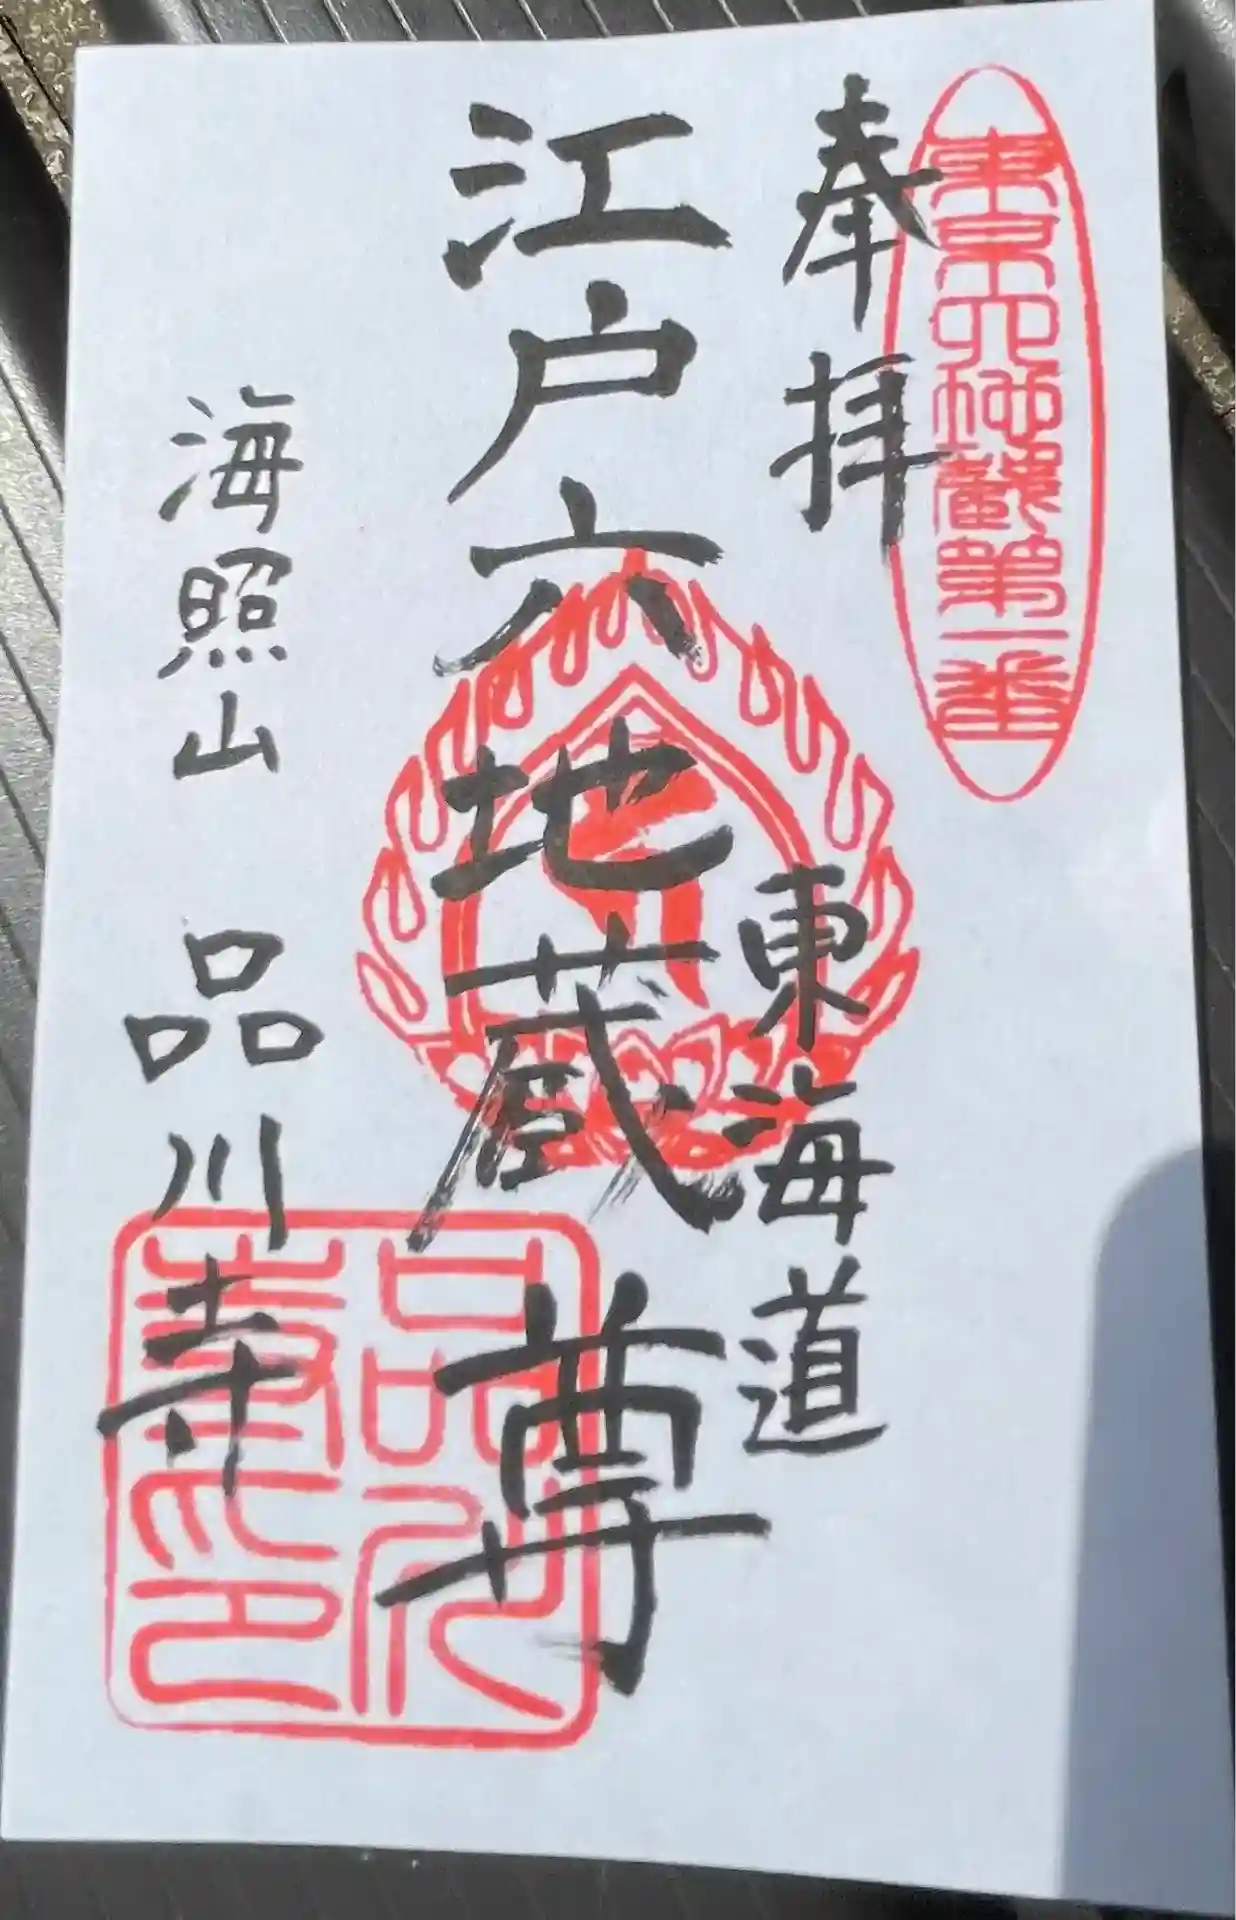 東京六地蔵第一番
奉拝
東海道
江戸六地蔵尊
海照山 品川寺
品川寺印